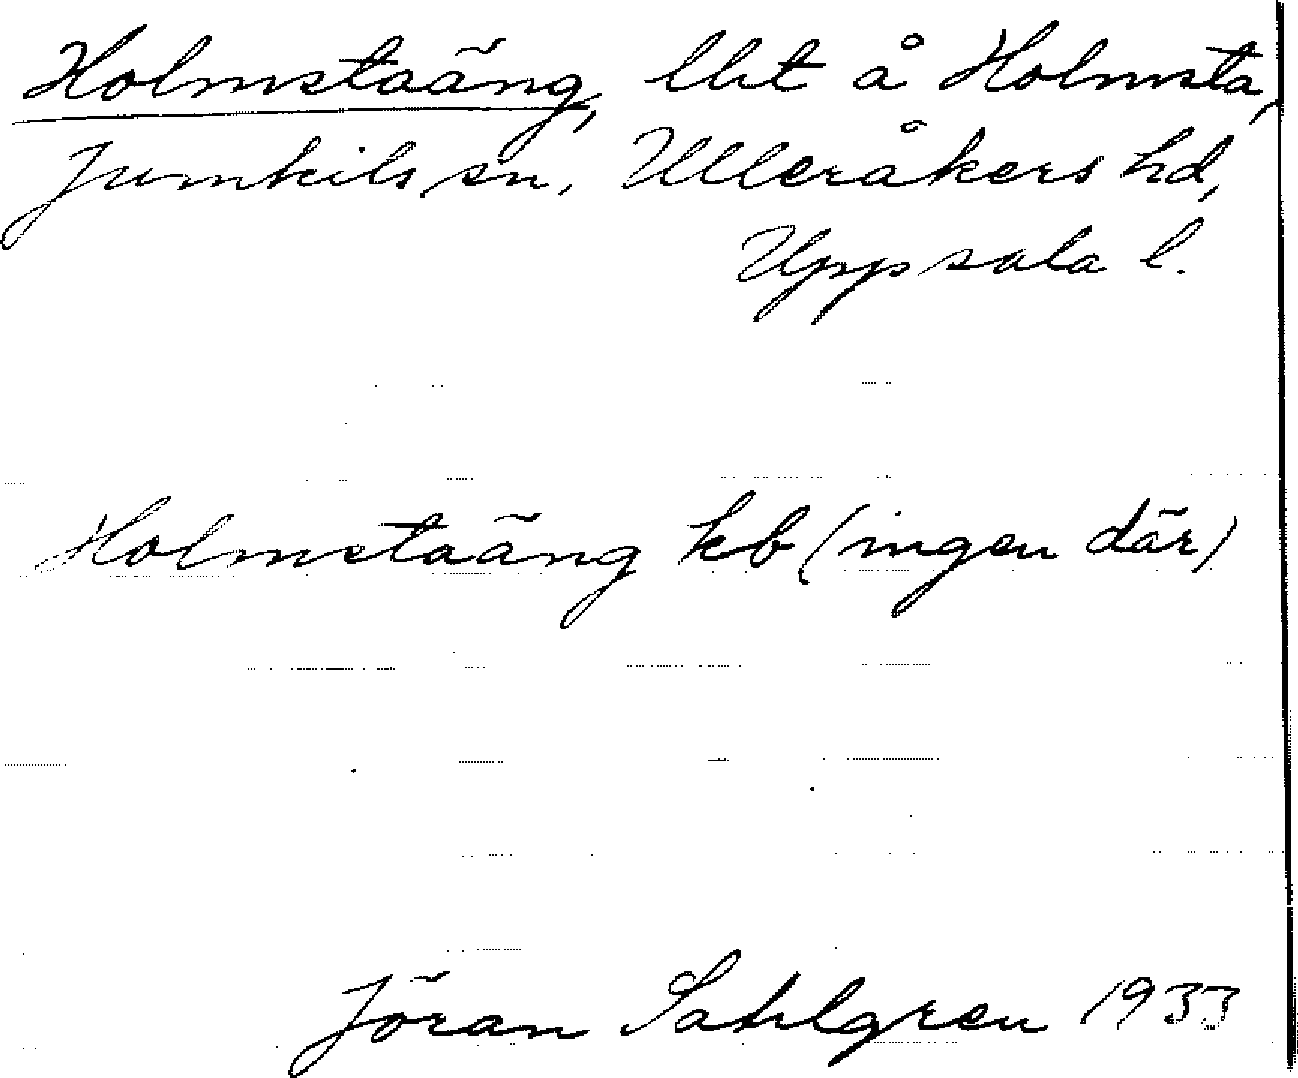 Holmstaäng, lht å Holmsta,
Jumkils sn, Ulleråkers hd,
Uppsala l.
Holmstaäng kb (ingen där)
Jöran Sahlgren 1933